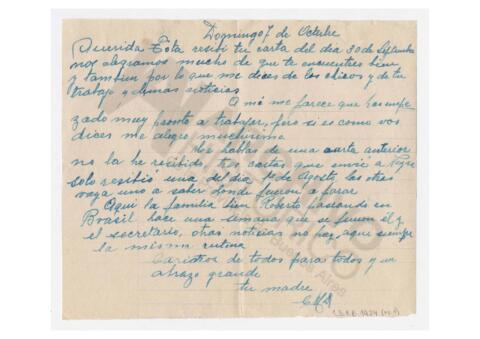 Domingo 7 de Octubre
Querida Tota recibí tu carta del dia 30 de Septiembre
nos alegramos mucho de que te encuentres bien
y tambien por lo que me dices de los chicos y de tu
trabajo y demas noticias
A mi me parece que has empe
zado muy pronto a trabajar, pero si es como vos
dices me alegro muchisimo
Me hablas de una carta anterior
no la he recibido, tres cartas que envié a
solo recibió una del dia 1º de Agosto, las otras
vaya uno a saber donde fueron a parar
Aqui la familia bien Roberto paseando en
Brasil hace una semana que se fueron él y
el secretario, otras noticias no hay, aqui siempre
la misma rutina
Cariños de todos para todos y un
abrazo grande
tu madre
Buenos Aires